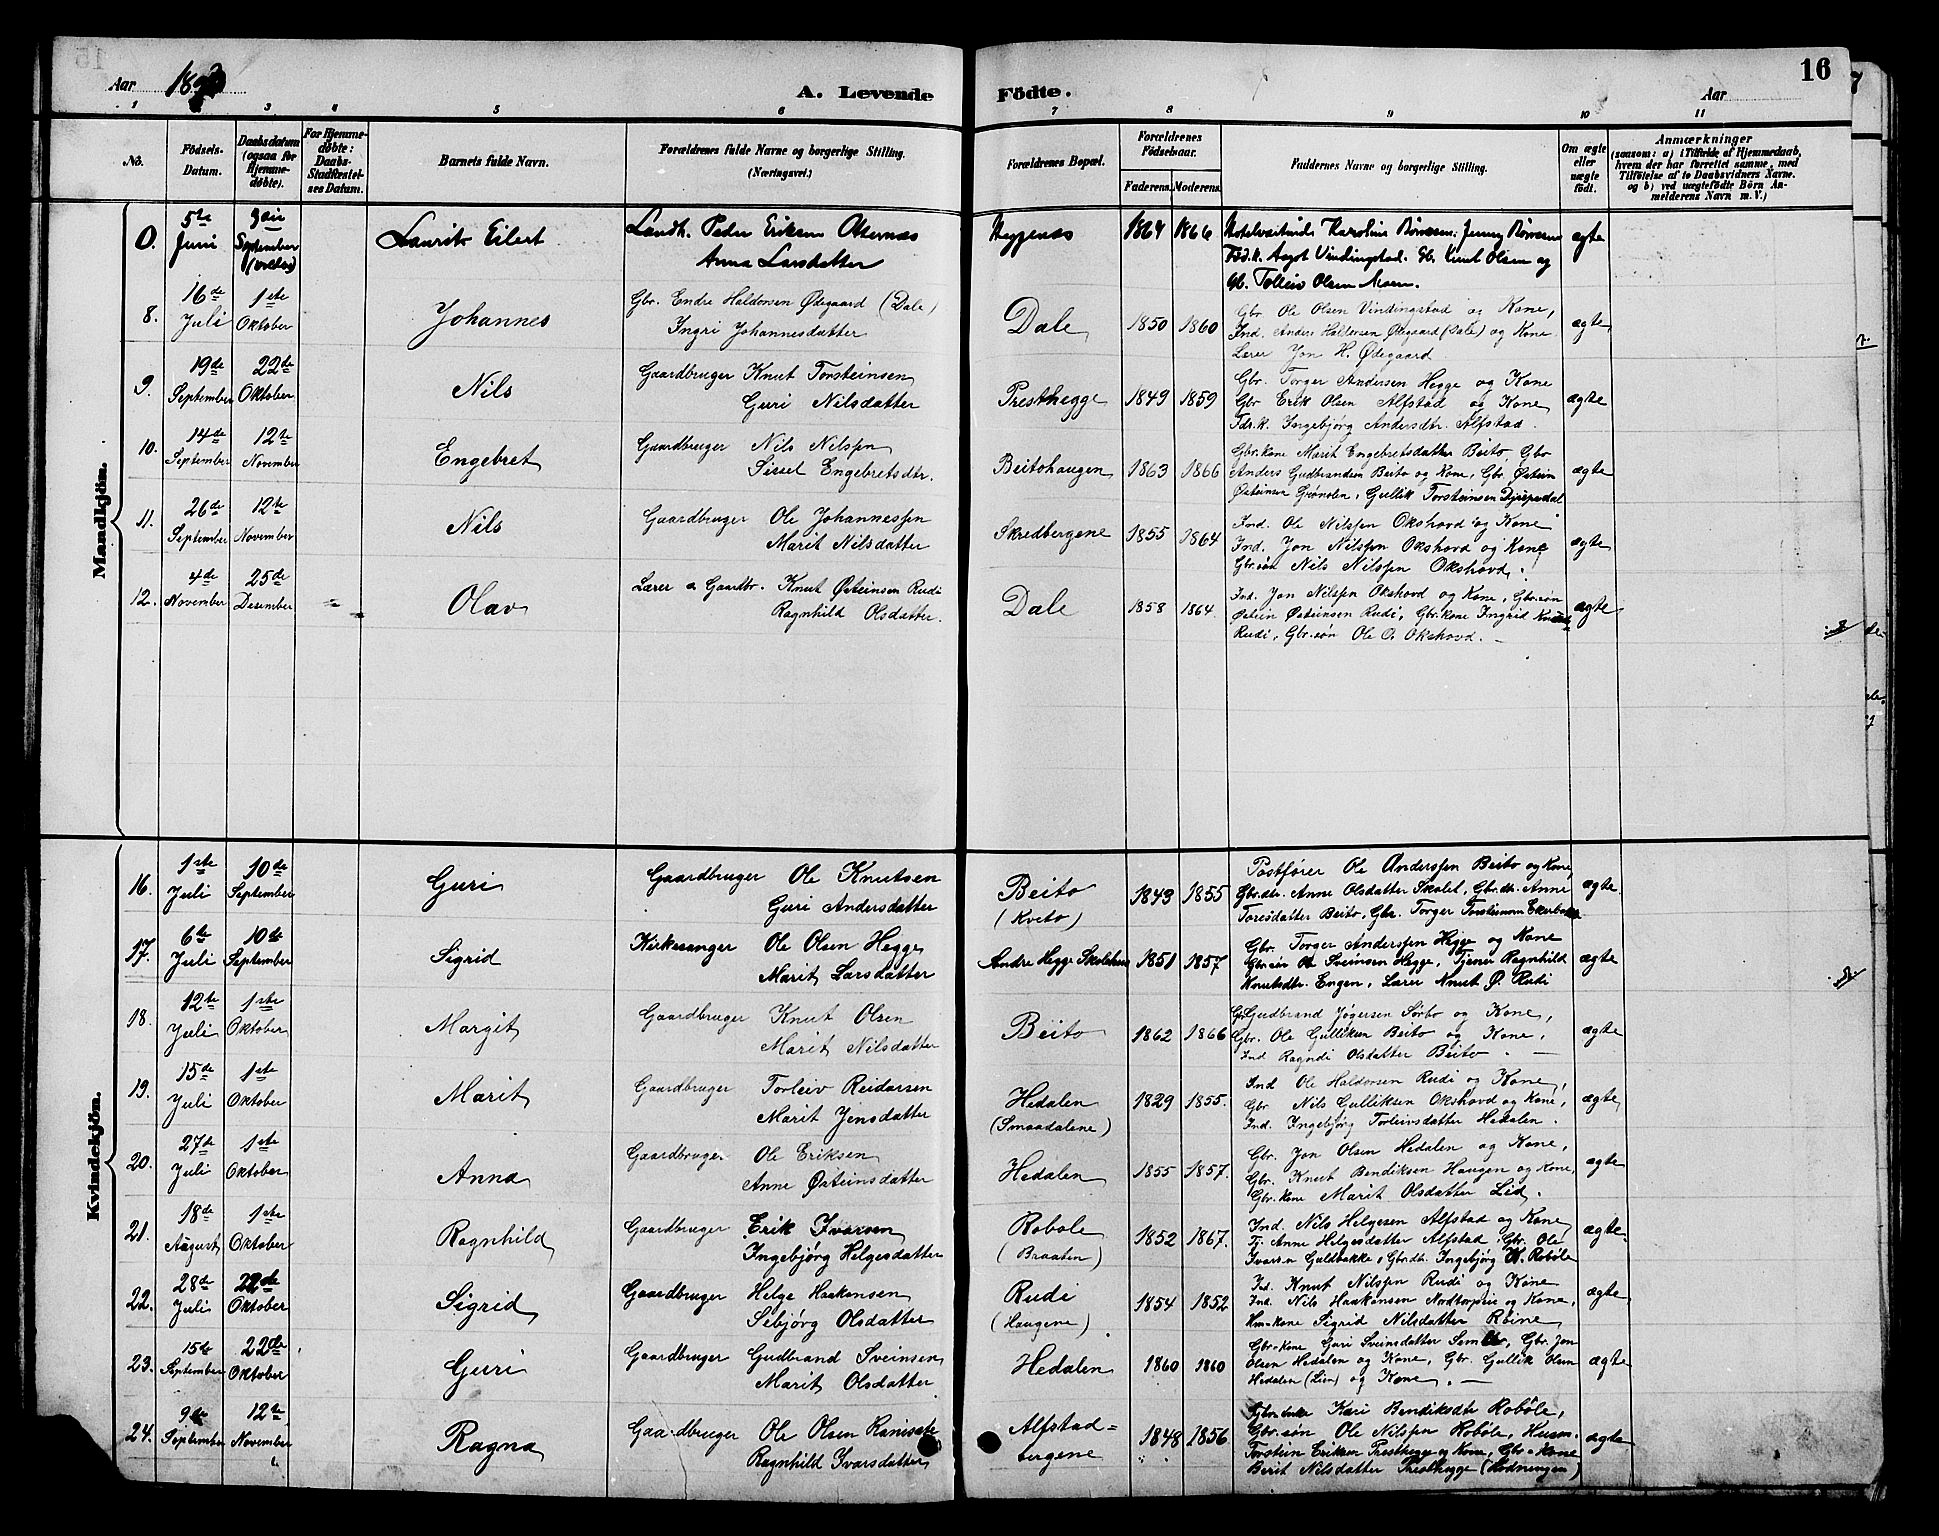 16
Aar 189 A. Levende Födte. Aar
1 3 4 5 6 7 8 9 10 11
No. Födsels-Datum. Daabsdatum (ogsaa for Hjemme-døbte). For Hjemme-døbte: Daabs-Stadfæstel-ses Datum. Barnets fulde Navn. Forældrenes fulde Navne og borgerlige Stilling. (Næringsvei.) Forældrenes Bopæl. Forældrenes Födselsaar. Faderens. Moderens. Faddernes Navne og borgerlige Stilling. Om ægte eller uægte födt. Anmærkninger (saasom: a) i Tilfælde af Hjemmedaab, hvem der har forrettet samme, med Tilföielse af to Daabsvidners Navne. og b) ved uægtefödte Börn An-melderens Navn m. V.)
Mandkjön.
0. 5te Juni 3die September Laurits Eilert Landh. Peder Eriksen
Anna Larsdatter Heggenæs 1864 1866 Karoline Jenny
Aagot Vindingstad. Knut Olsen og
Olsen ægte
8. 16de Juli 1ste Oktober Johannes Gbr. Endre Haldorsen Ødegaard (Dale)
Ingri Johannesdatter Dale 1850 1860 Gbr Ole Olsen Vindingstad og Kone,
Ind. Anders Haldorsen Ødegaard (Dale) og Kone.
Lærer Jon H. Ødegaard. ægte
9. 19de September 22de Oktober Nils Gaardbruger Knut Torsteinsen
Guri Nilsdatter Presthegge 1849 1859 Gbr. Torger Andersen Hegge og Kone
Gbr Erik Olsen Alfstad og Kone
Fdr.k. Ingebjörg Andersdtr. Alfstad. ægte
10. 14de September 12te November Engebret Gaardbruger Nils Nilsen
Sissel Engebretsdtr. Beitohaugen 1863 1866 Gbr.kone Marit Engebretsdatter Beito, Gbr
Anders Gudbrandsen Beito og Kone, Gbr Østein
Østeinsen Grønolen, Gullik Torsteinsen ægte
11. 26de September 12te November Nils Gaardbruger Ole Johannessen
Marit Nilsdatter Skredbergene 1855 1864 Ind. Ole Nilssen Okshovd og Kone
Ind. Jon Nilssen Okshovd og Kone
Gbr.søn Nils Nilssen Okshovd. ægte
12. 4de November 25de Desember Olav Lærer o Gaardbr. Knut Østeinsen Rudi
Ragnhild Olsdatter. Dale 1858 1864 Ind. Jon Nilssen Okshovd og Kone, Gbr.søn
Østein Østeinsen Rudi, Gbr.kone Ingrid
Rudi, Gbr.søn Ole O. Okshovd. ægte
Kvindekjön.
16. 1ste Juli 10de September Guri Gaardbruger Ole Knutsen
Guri Andersdatter Beito (Kvito) 1843 1855 Postfører Ole Anderssen Beito og Kone,
Gbr.dtr. Anne Olsdatter Skolet, Gbr.dtr. Anne
Toresdatter Beito, Gbr. Torger Torsteinsen ægte.
17. 6te Juli 10de September Sigrid Kirkesanger Ole Olsen Hegge
Marit Larsdatter Andre Hegge Skolehus 1851 1857 Gbr. Torger Anderssen Hegge og Kone
Gbr.søn Ole Sveinsen Hegge, Tjener Ragnhild
Knutsdtr. Engen, Lærer Knut Ø. Rudi ægte
18. 12te Juli 1ste Oktober Margit Gaardbruger Knut Olsen
Marit Nilsdatter Beito 1862 1866 Gbr Gudbrand Jögersen Sørbo og Kone,
Gbr. Ole Gulliksen Beito og Kone,
Ind Ragndi Olsdatter Beito. ægte
19. 15de Juli 1ste Oktober Marit Gaardbruger Torleiv Reidarsen
Marit Jensdatter Hedalen (Smaadalene) 1829 1855. Ind Ole Haldorsen Rudi og Kone,
Gbr Nils Gulliksen Okshovd og Kone,
Ind. Ingebjörg Torleivsdatter Hedalen. ægte
20. 27de Juli 1ste Oktober Anna Gaardbruger Ole Eriksen
Anne Østeinsdatter Hedalen 1855 1857. Gbr. Jon Olsen Hedalen og Kone,
Gbr. Knut Bendiksen Haugen og Kone,
Gbr.kone Marit Olsdatter Lid. ægte
21. 18de August 1ste Oktober Ragnhild Gaardbruger Erik Ivarsen
Ingebjörg Helgesdatter Robøle (Braaten) 1852 1867. Ind. Nils Helgesen Alfstad og Kone
Tj. Anne Helgesdatter Alfstad, Gbr. Ole
Ivarsen Guldbakke, Gbrdtr. Ingebjörg Robøle ægte.
22. 28de Juli 22de Oktober Sigrid Gaardbruger Helge Haakonsen
Sebjörg Olsdatter Rudi (Haugene) 1854 1852 Ind. Knut Nilssen Rudi og Kone
Ind. Nils Haakonsen Nordtorpeie og Kone,
Hm-kone Sigrid Nilsdatter Röine ægte,
23. 15de September 22de Oktober Guri Gaardbruger Gudbrand Sveinsen
Marit Olsdatter Hedalen 1860 1860 Gbr-kone Guri Sveinsdatter Gbr. Jon
Olsen Hedalen og Kone, Gbr. Gullik Olsen
Hedalen (Lien) og Kone. ægte
24. 9de September 12te November Ragna Gaardbruger Ole Olsen
Ragnhild Ivarsdatter Alfstad=bergene 1848 1856 Kari Bendiksdtr Robøle,
Gbr.søn Ole Nilssen Robøle, Husm.
Torstein Eriksen Presthegge og Kone, Gbr-kone
Berit Nilsdatter Presthegge (Hodningen) ægte